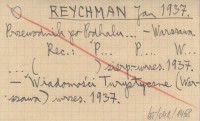 REYCHMAN Jan 1937.
Przewodnik po Podhalu... - Warszawa
Rec.: P... P... W...
... ( ) sierp-wrzes. 1937.
- Wiadomości Turystyczne (War-
szawa) wrzes. 1937.